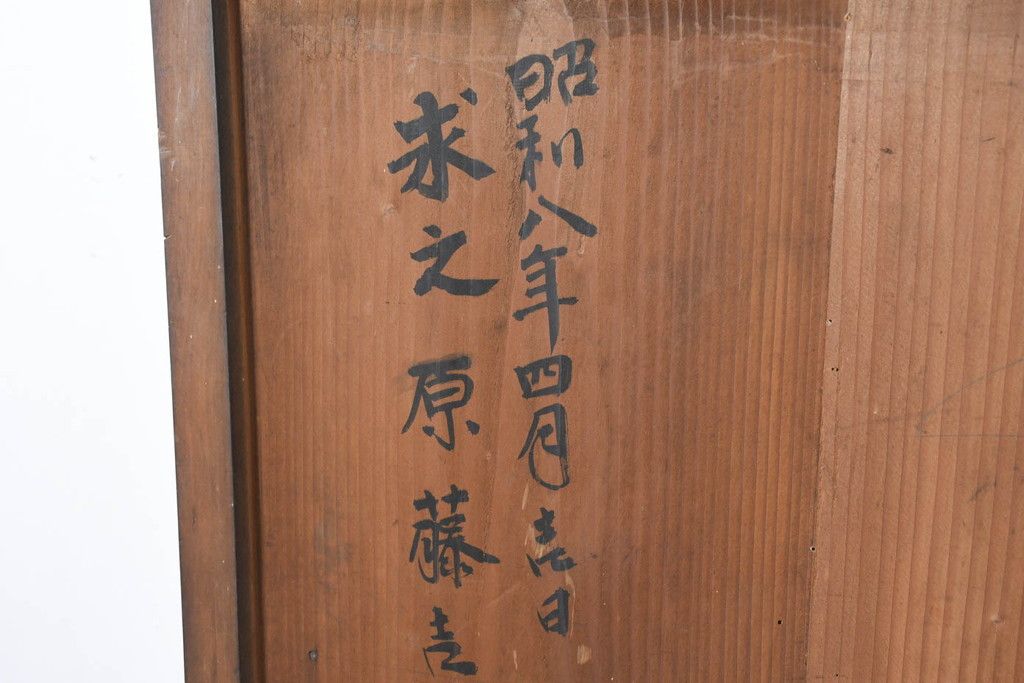 昭和八年四月吉日
求之原藤吉